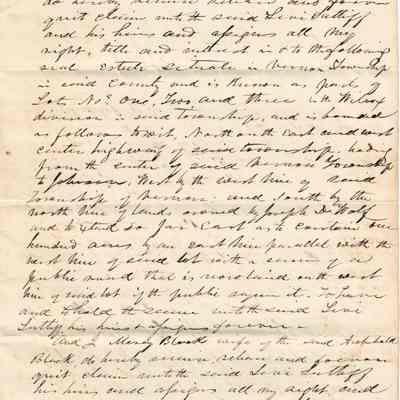 do hereby remise release and forever
quit claim unto the said Levi Sutliff
and his heirs and assigns all my
right, title and interest in & to the following
real Estate situate in Vernon Township
in said County and is Known as part of
Lots No. One, Two, and Three in the Wilcox
division in said township, and is bounded
as follows to wit, North on the East and west
center highway of said township leading
from the center of said Vernon Township
to Johnson, West by the west line of said
township of Vernon and South by the
north line of lands owned by Joseph De Wolf
and to extend so far East as to contain one
hundred acres by an east line parallel with the
west line of said lot with a of a
public road that is now laid on the west
line of said lot if the public it. To have
and to hold the same unto the said Levi
Sutliff his heirs & assigns forever.
And I Mercy Black wife of the said Archibald
Black, do hereby remise release and forever
quit claim unto the said Levi Sutliff
his heirs and assigns all my right and